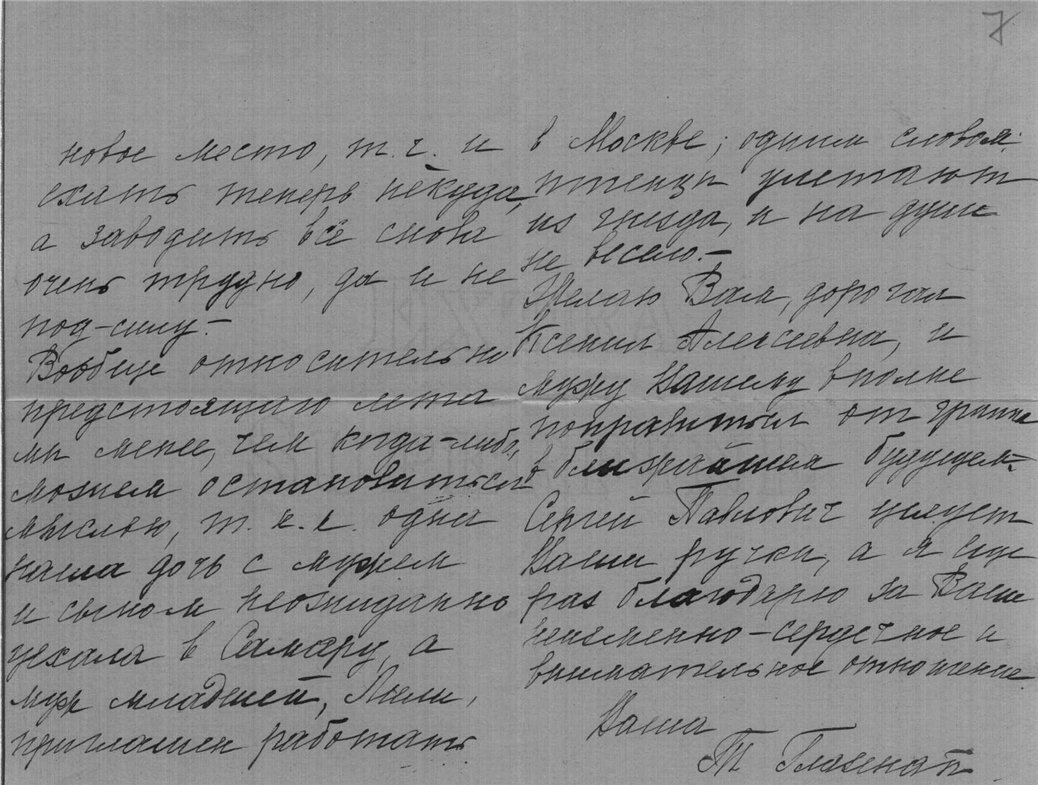 7
новое место, т. ч. и
ехать теперь некуда,
а заводить всё снова
очень трудно, да и не
под-силу.-
Вообще относительно
предстоящаго лета
мы менее, чем когда-либо,
можем остановиться
мыслью, т. к. одна
наша дочь с мужем
и сыном неожиданно
уехала в Самару, а
муж младшей, Ляли,
приглашен работать
в Москве; одним словом
птенцы улетают
из гнезда, и на душе
не весело.-
Желаю Вам, дорогая
Ксения Алексеевна, и
мужу Вашему вполне
поправиться от гриппа
в ближайшем будущем.
Сергей Павлович целует
Ваши ручки, а я еще
раз благодарю за Ваше
неизменно-сердечное и
внимательное отношение.
Ваша
Т Глазенап